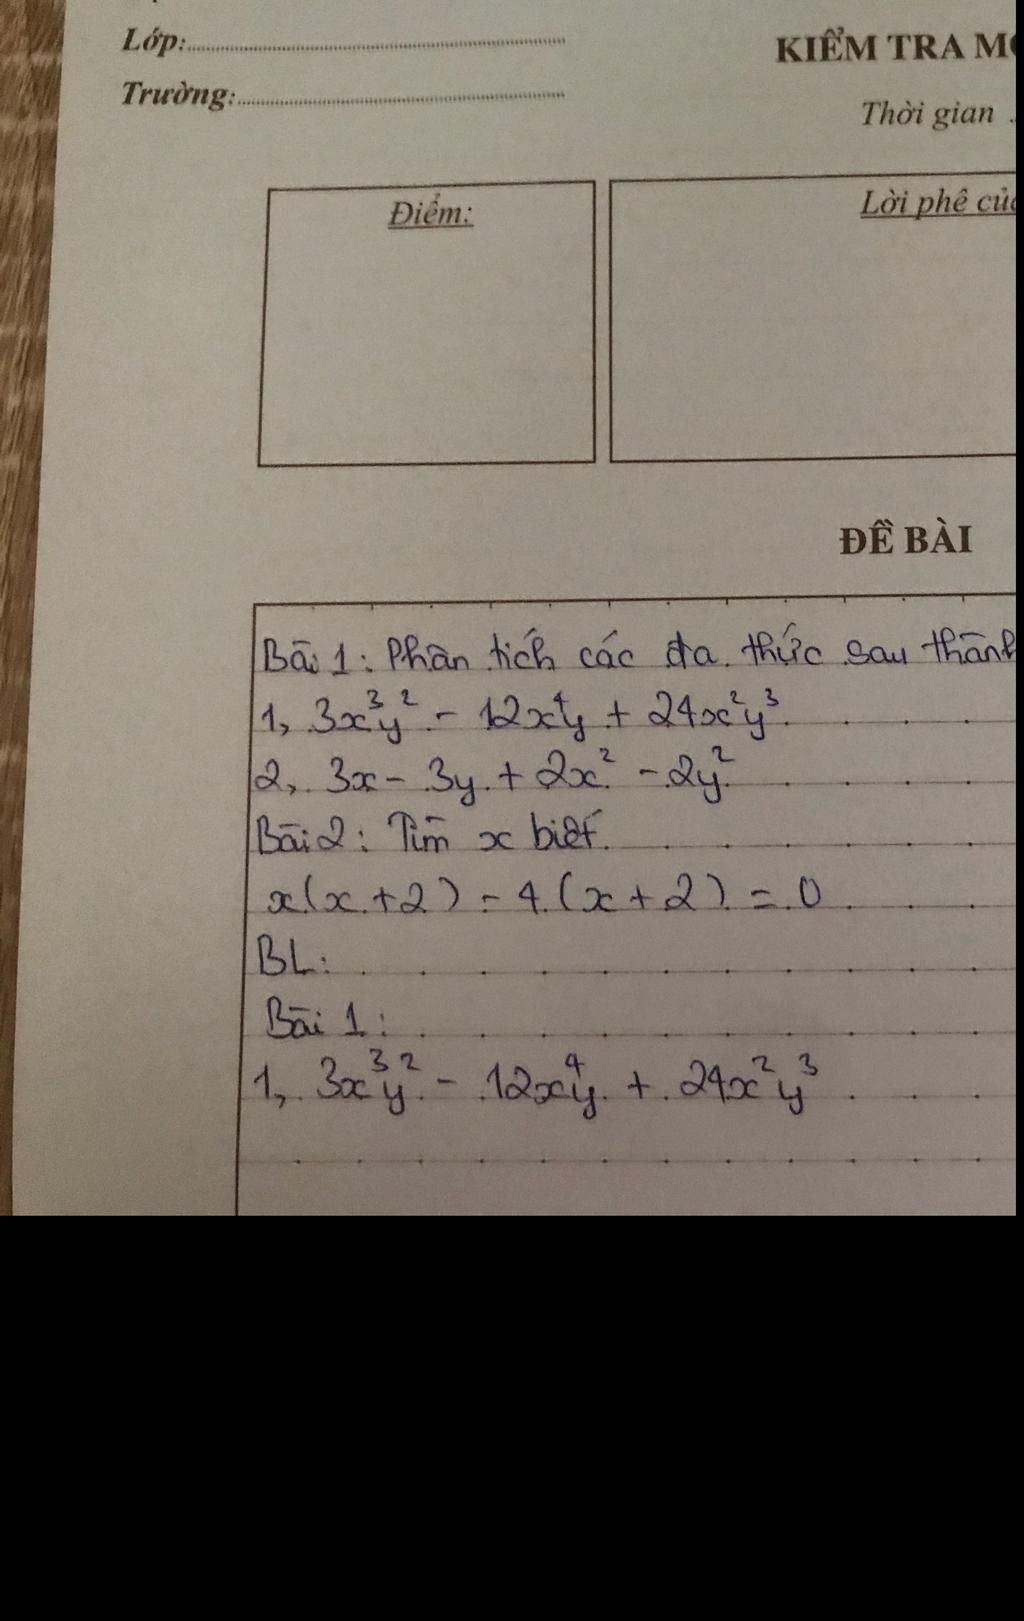 Lớp:
Trường:
KIỂM TRA
Thời gian
Điểm:
Lời phê
ĐỀ BÀI
Bài 1: Phân tích các đa thức sau thành
1, 3x³y² - 12x⁴y + 24x²y³
2, 3x - 3y + 2x² - 2y²
Bài 2: Tìm x biết
x(x+2) - 4(x+2) = 0
BL:
Bài 1:
1, 3x³y² - 12x⁴y + 24x²y³